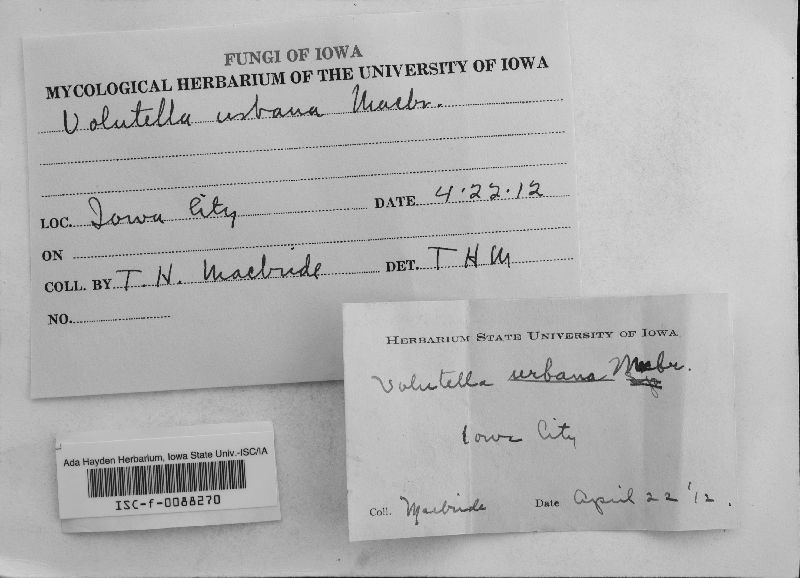 FUNGI OF IOWA
MYCOLOGICAL HERBARIUM OF THE UNIVERSITY OF IOWA
Volutella urbana Macbr.
LOC. Iowa City DATE 4.22.12
ON
COLL. BY T. H. Macbride DET. T H M
NO.
HERBARIUM STATE UNIVERSITY OF IOWA
Volutella urbana Macbr.
Iowa City
Coll. Macbride Date April 22 '12.
Ada Hayden Herbarium, Iowa State Univ.-ISC/IA
ISC-f-0088270